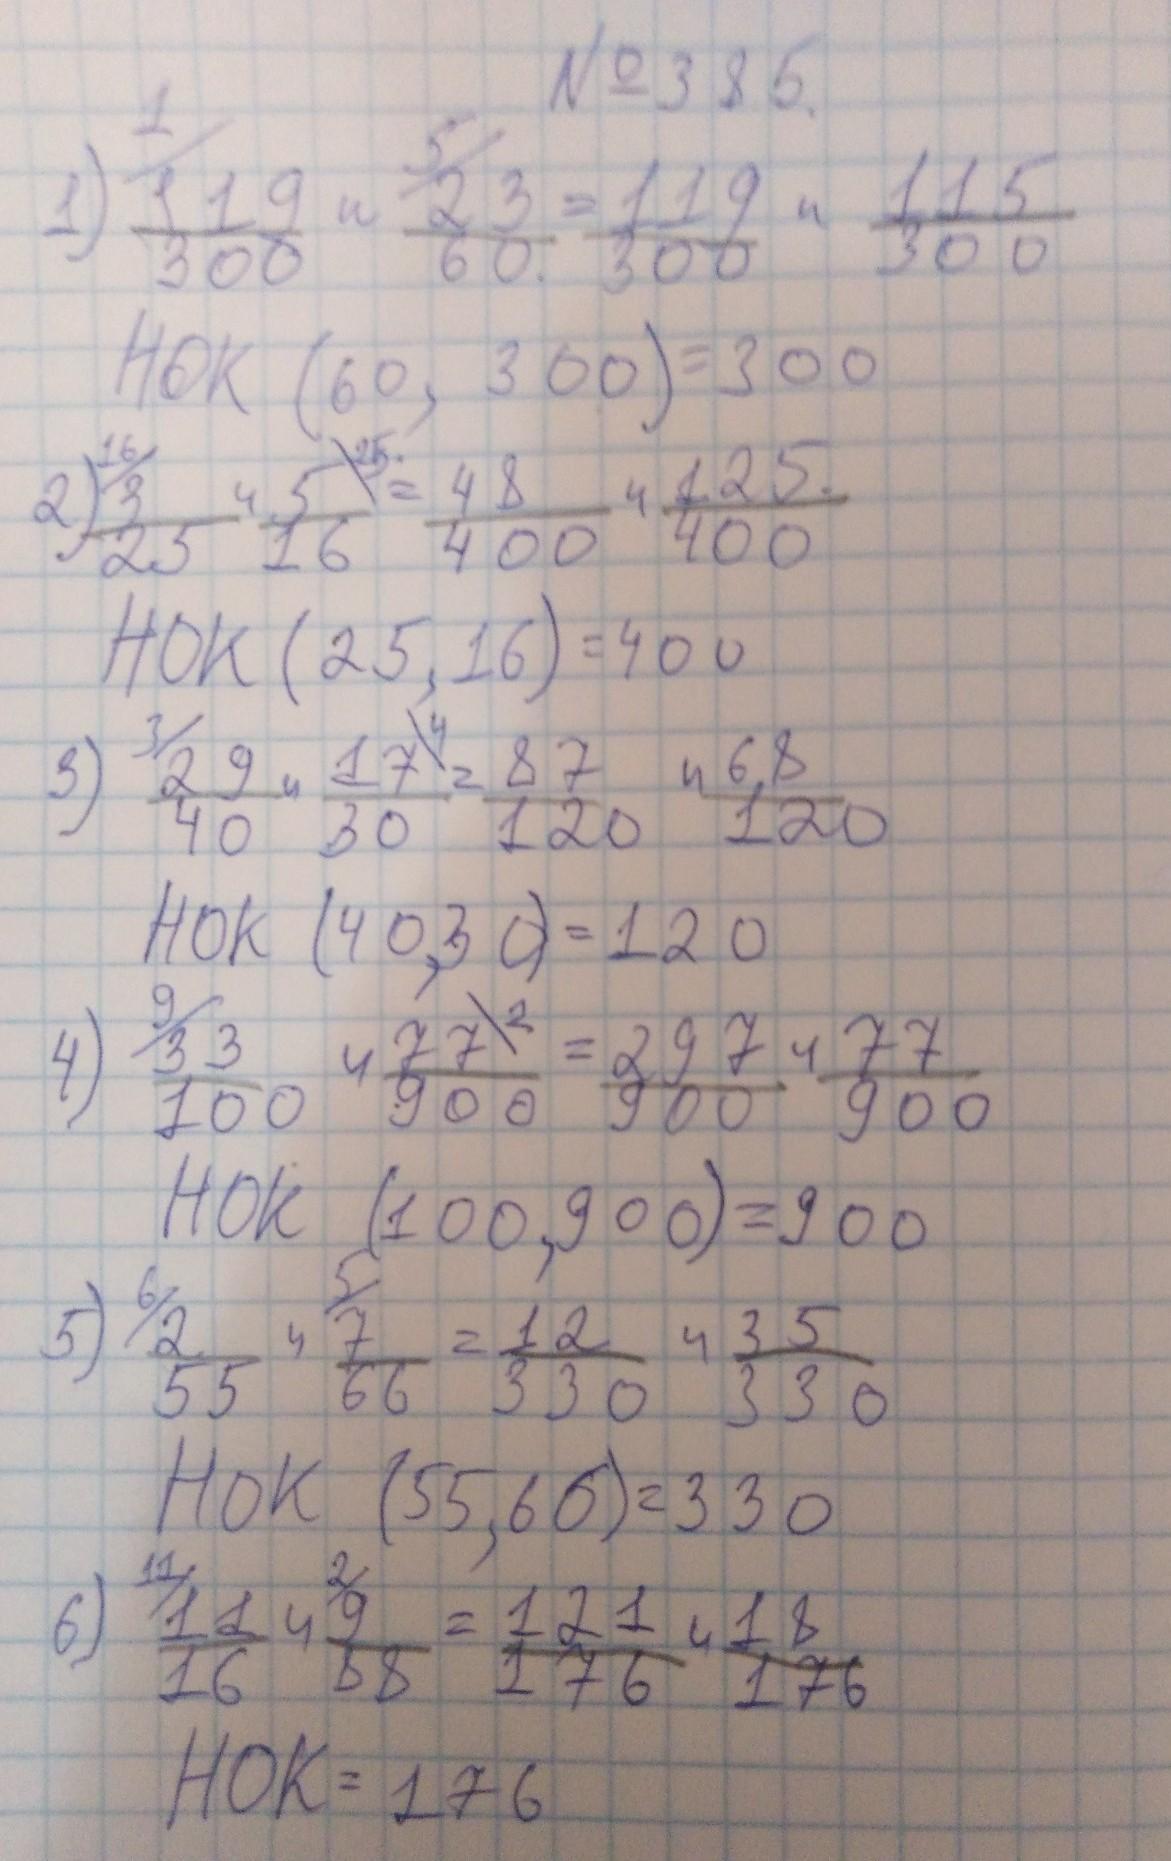 №385.
1) 1/ 119/300 и 5/ 23/60. = 119/300 и 115/300
НОК (60, 300) = 300
2) 16/ 3/25 и 5/16 \25. = 48/400 и 125./400
НОК (25, 16) = 400
3) 3/ 29/40 и 17/30 \4 = 87/120 и 68/120
НОК (40, 30) = 120
4) 9/ 33/100 и 77/900 \2 = 297/900 и 77/900
НОК (100, 900) = 900
5) 6/ 2/55 и 5/ 7/66 = 12/330 и 35/330
НОК (55, 66) = 330
6) 11/ 11/16 и 2/ 9/88 = 121/176 и 18/176
НОК = 176